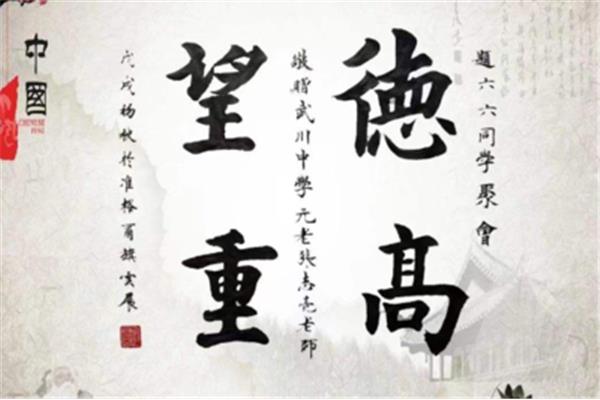 題六六同学聚會
德高
敬贈武川中學元老张志亮老师
望重
戊戌杨秋於准格爾旗
中國
CHINESE